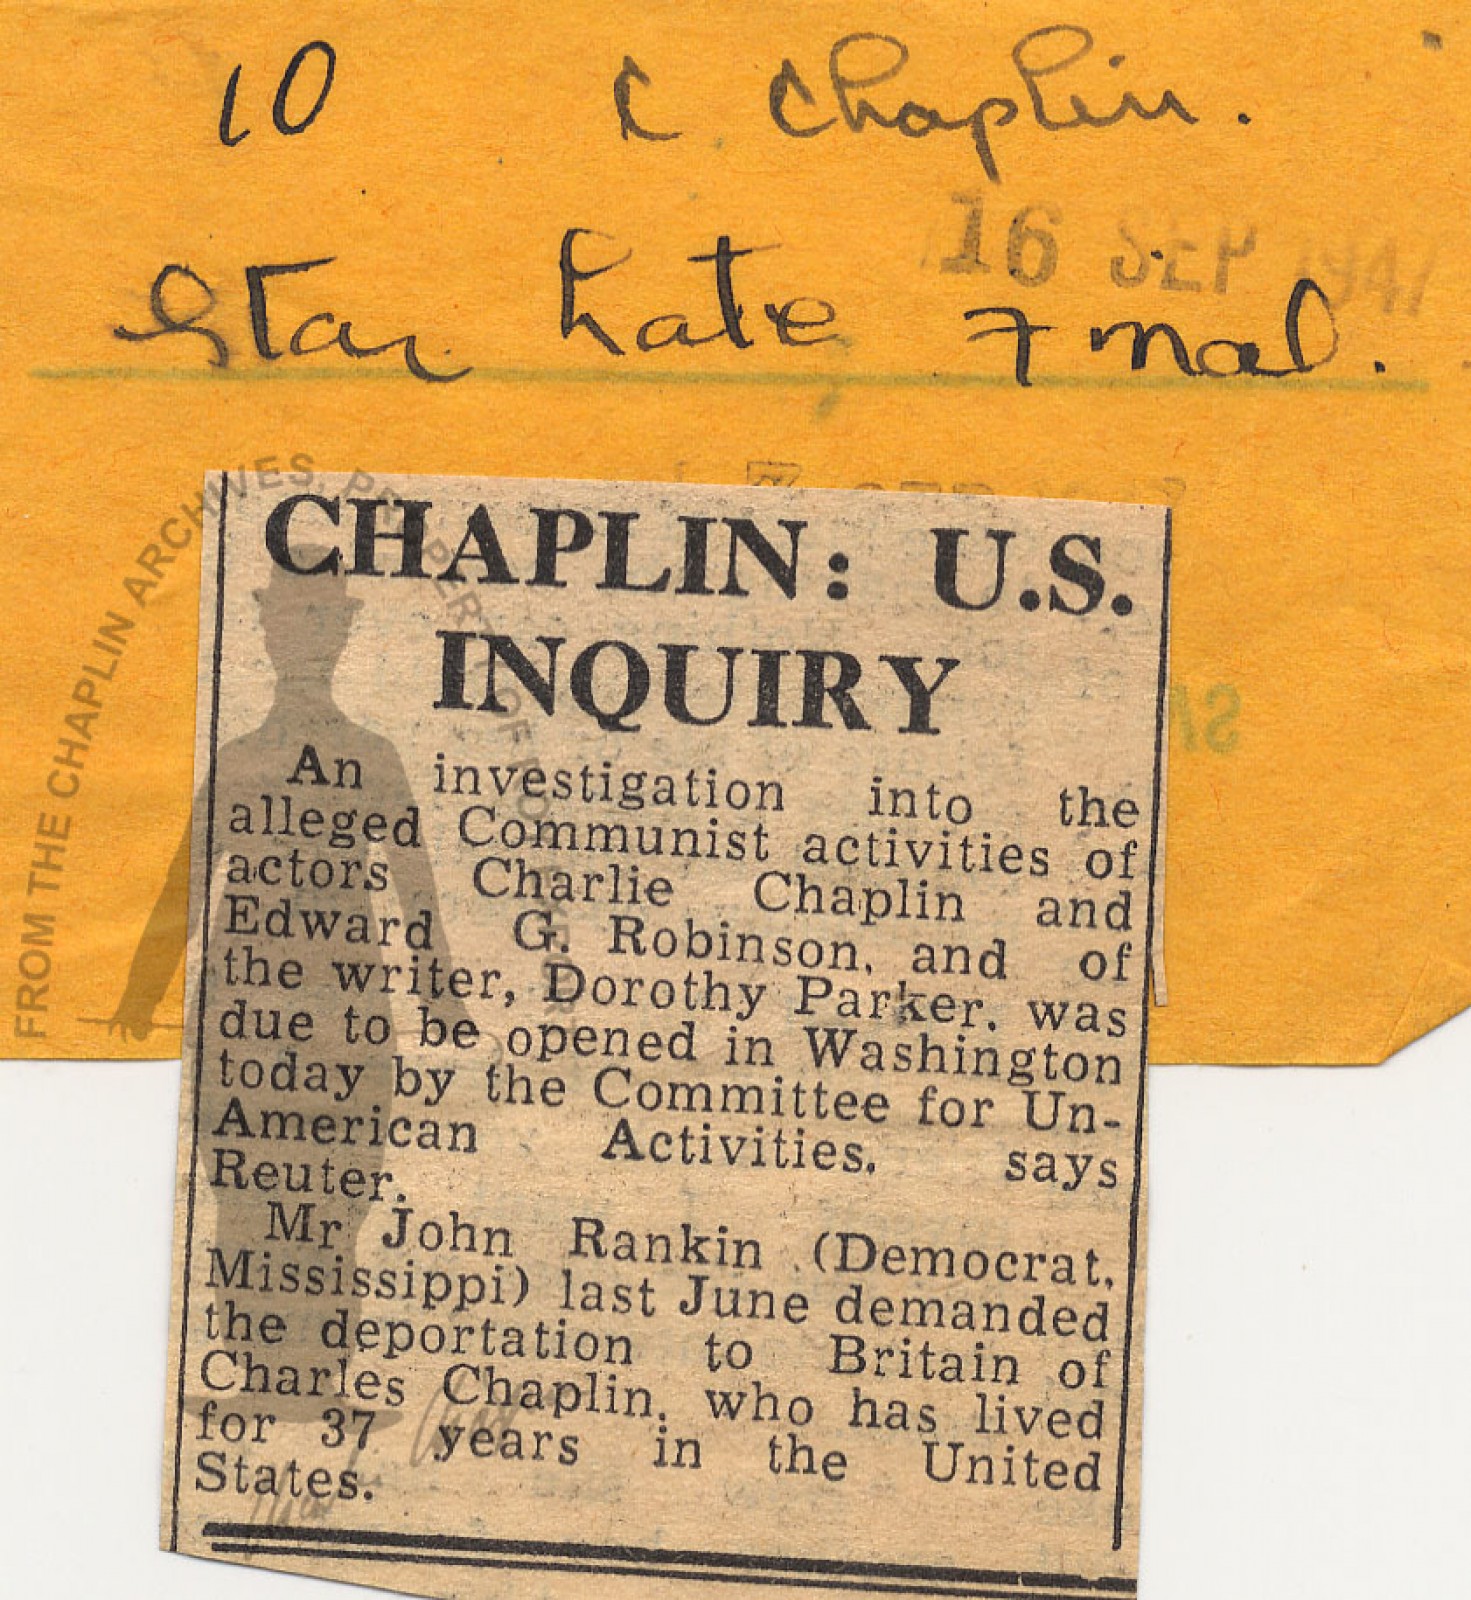 10 C Chaplin.
16 SEP 1947
Star Late Final.
CHAPLIN: U.S.
INQUIRY
An investigation into the
alleged Communist activities of
actors Charlie Chaplin and
Edward G. Robinson, and of
the writer, Dorothy Parker, was
due to be opened in Washington
today by the Committee for Un-
American Activities, says
Reuter.
Mr John Rankin (Democrat,
Mississippi) last June demanded
the deportation to Britain of
Charles Chaplin, who has lived
for 37 years in the United
States.
FROM THE CHAPLIN ARCHIVES, PROPERTY OF ROY EXPORT